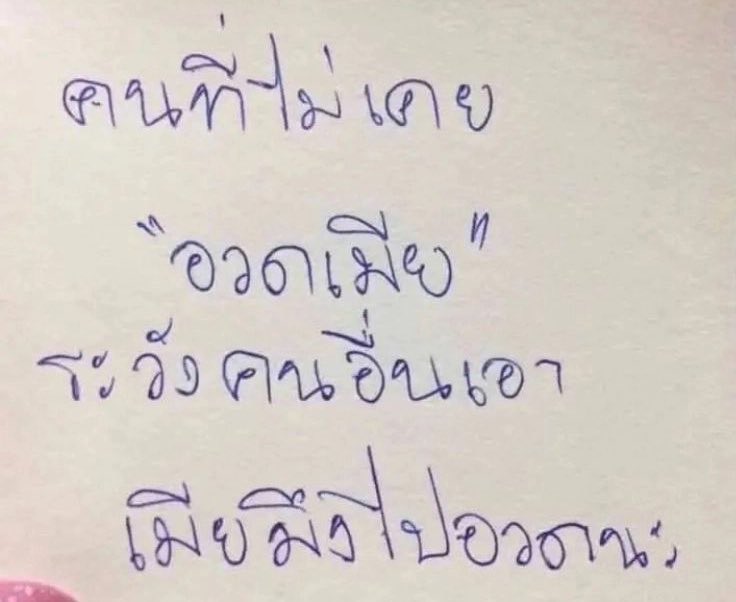 คนที่ไม่เคย
"อวดเมีย"
ระวังคนอื่นเอา
เมียมึงไปอวดนะ